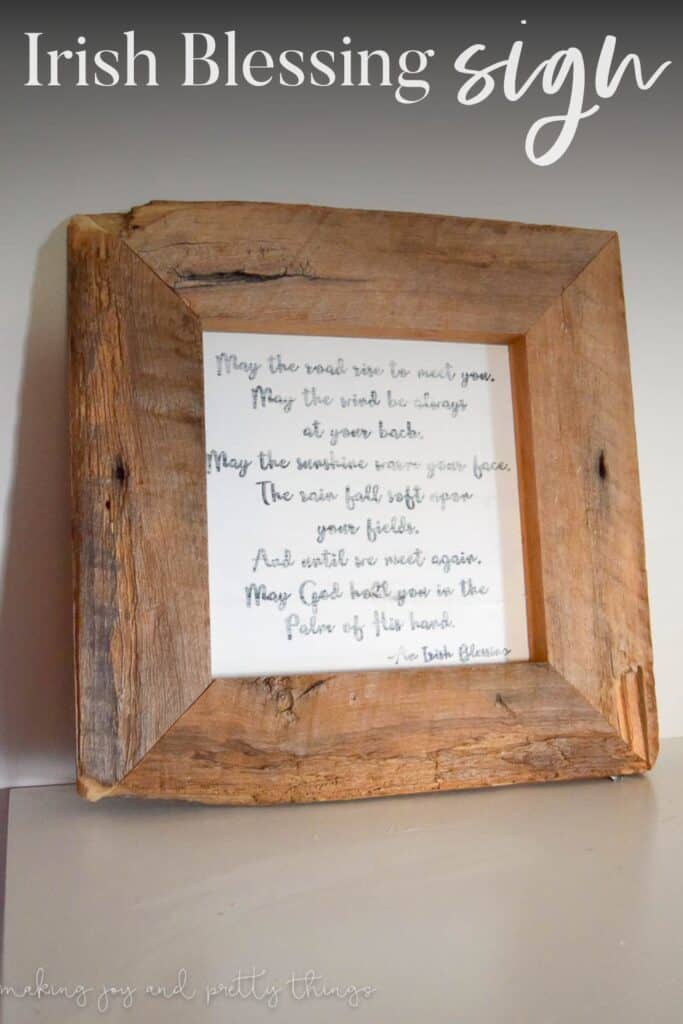 Irish Blessing sign
May the road rise to meet you.
May the wind be always
at your back.
May the sunshine warm your face.
The rain fall soft upon
your fields.
And until we meet again.
May God hold you in the
Palm of His hand.
~An Irish Blessing
making joy and pretty things